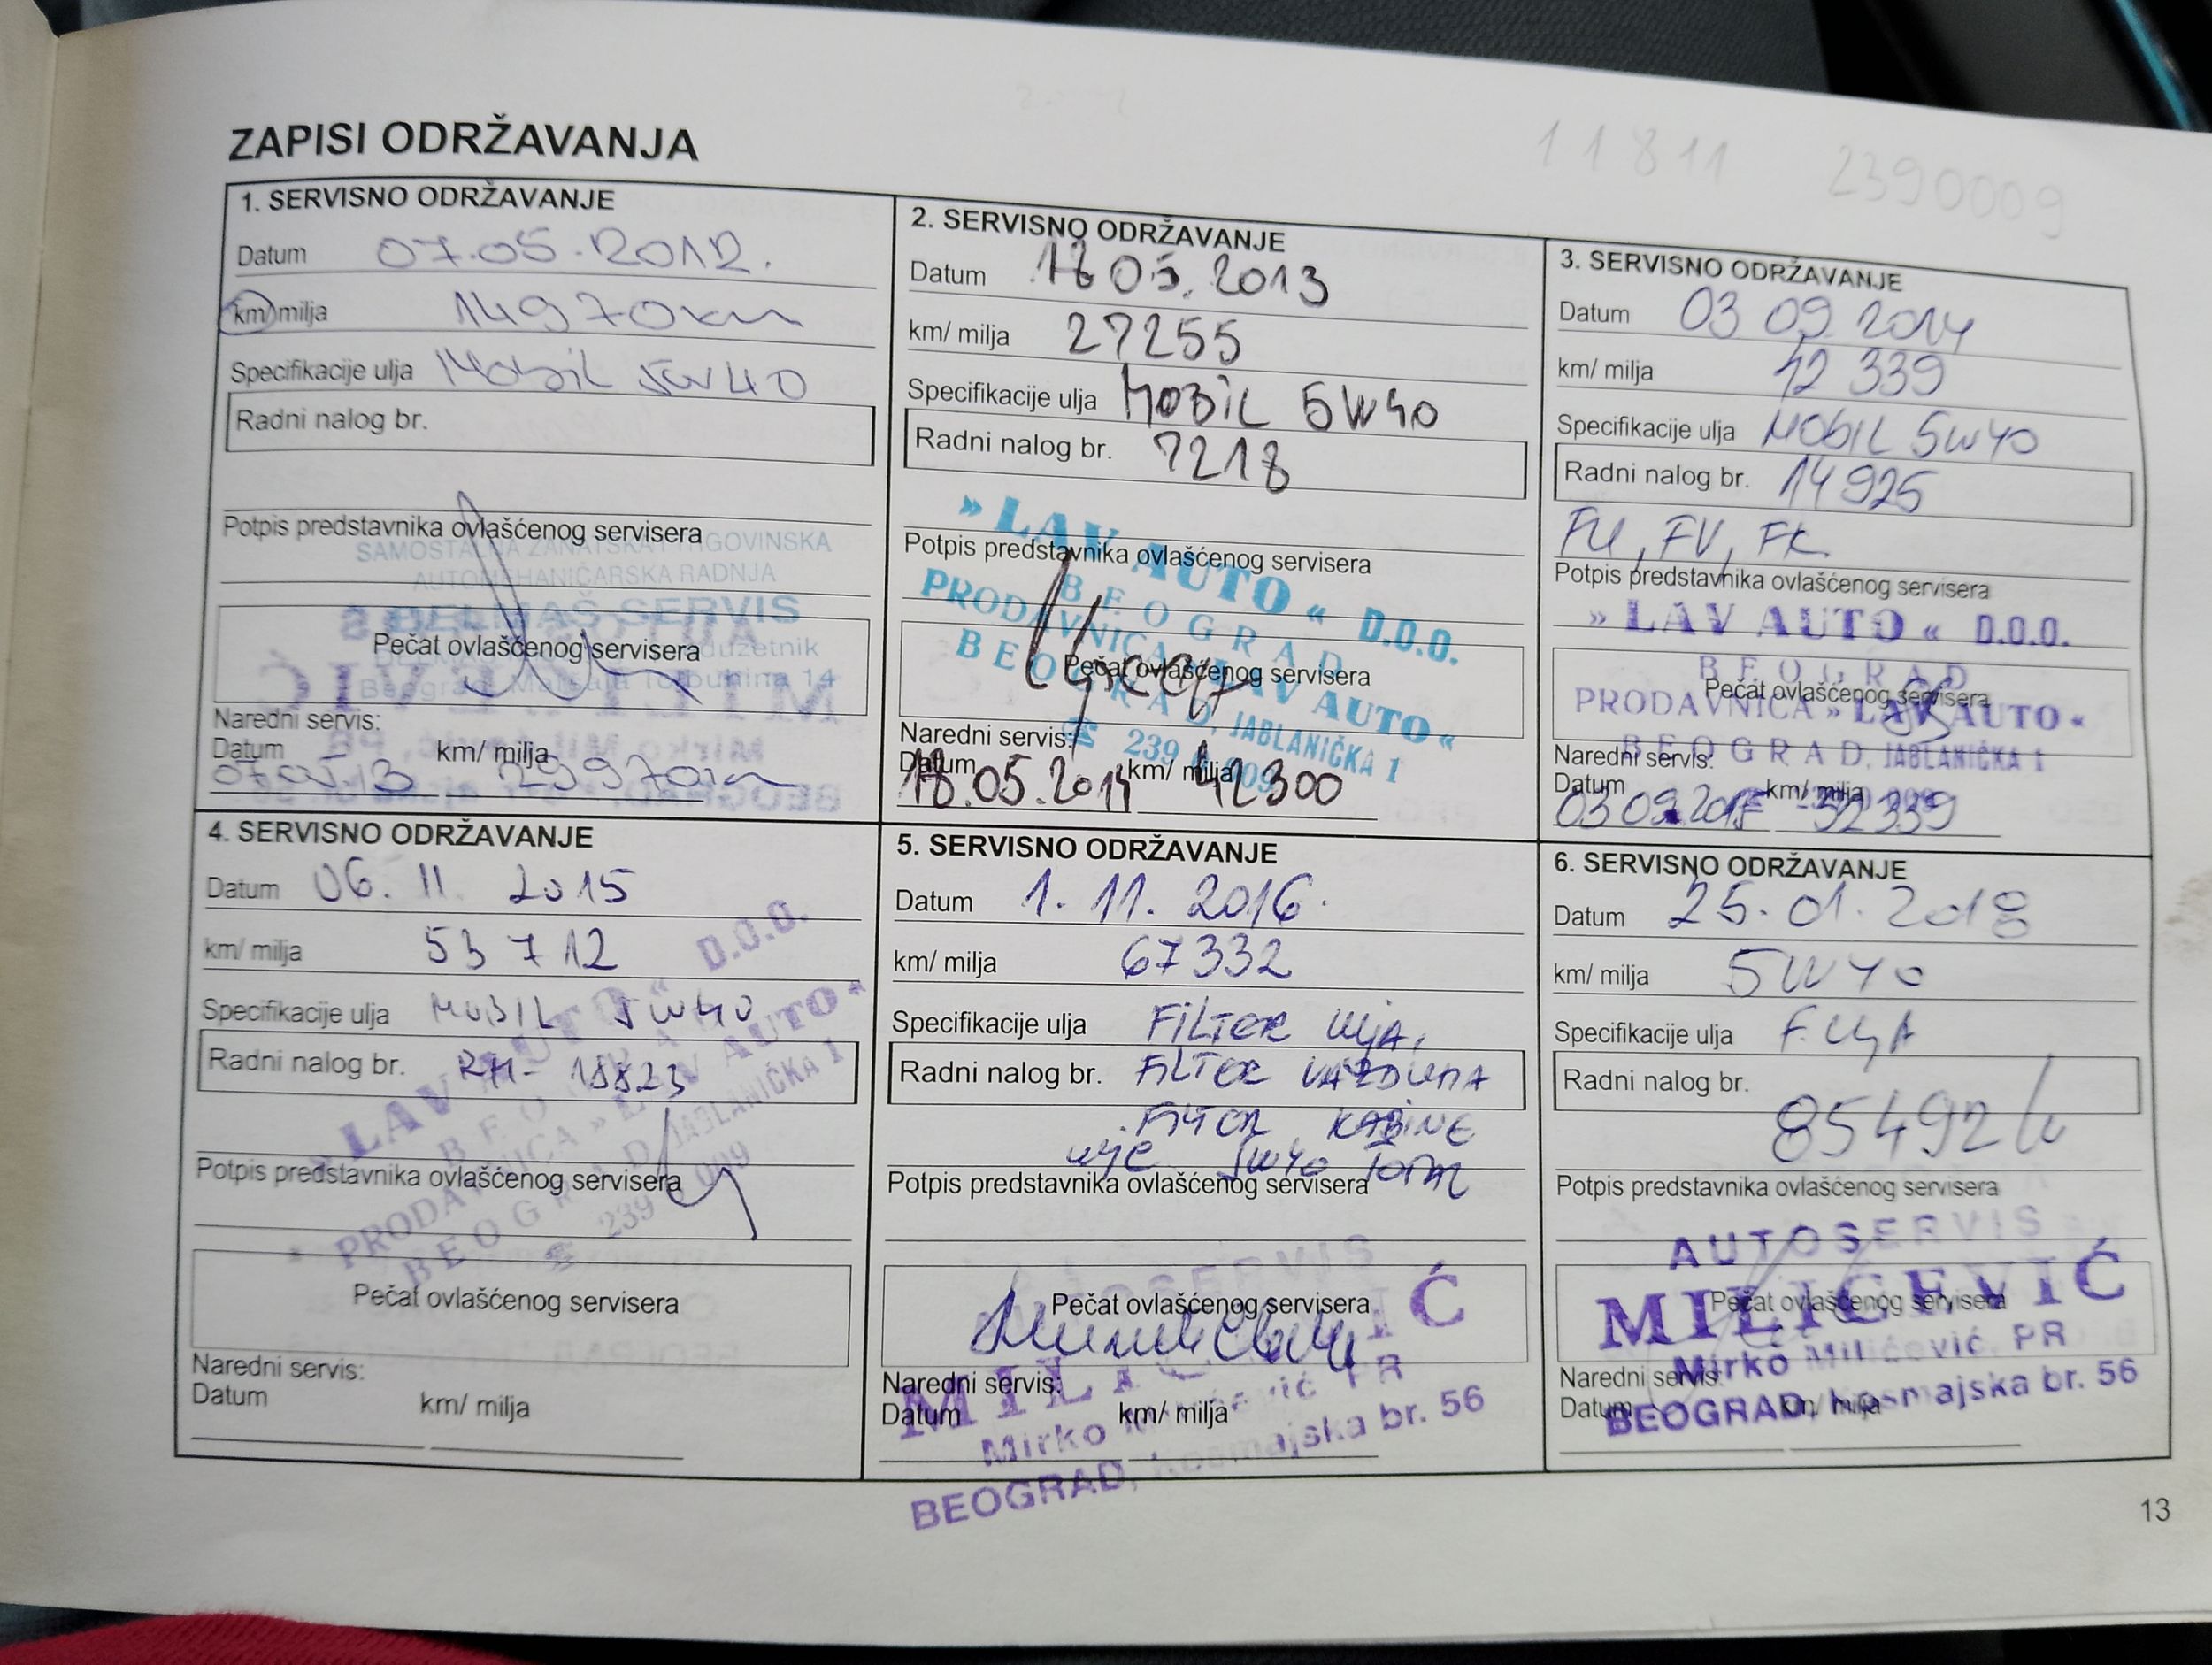 11811 2390009
ZAPISI ODRŽAVANJA
1. SERVISNO ODRŽAVANJE
Datum 07.05.2012.
km/ milja 14970km
Specifikacije ulja Mobil 5W40
Radni nalog br.
Potpis predstavnika ovlašćenog servisera
SAMOSTALNA ZANATSKA I TRGOVINSKA
AUTOMEHANIČARSKA RADNJA
DELMAŠ SERVIS
Pečat ovlašćenog servisera
Naredni servis:
Datum km/ milja
07.05.13 29970km
2. SERVISNO ODRŽAVANJE
Datum 18 05. 2013
km/ milja 27255
Specifikacije ulja MOBIL 5W40
Radni nalog br. 7218
Potpis predstavnika ovlašćenog servisera
» LAV AUTO « D.O.O.
BEOGRAD
PRODAVNICA » LAV AUTO «
BEOGRAD, JABLANIČKA 1
☎ 239 009
Pečat ovlašćenog servisera
Naredni servis:
Datum km/ milja
18.05.2014 42300
3. SERVISNO ODRŽAVANJE
Datum 03 09 2014
km/ milja 42 339
Specifikacije ulja MOBIL 5W40
Radni nalog br. 14925
FU, FV, FK
Potpis predstavnika ovlašćenog servisera
» LAV AUTO « D.O.O.
BEOGRAD
Pečat ovlašćenog servisera
PRODAVNICA » LAV AUTO «
BEOGRAD, JABLANIČKA 1
Naredni servis:
Datum km/ milja
03 09 2015 52339
4. SERVISNO ODRŽAVANJE
Datum 06. 11 2015
km/ milja 53 712
Specifikacije ulja MOBIL 5W40
Radni nalog br. RN- 18823
» LAV AUTO « D.O.O.
BEOGRAD
PRODAVNICA » LAV AUTO «
BEOGRAD, JABLANIČKA 1
☎ 239 009
Potpis predstavnika ovlašćenog servisera
Pečat ovlašćenog servisera
Naredni servis:
Datum km/ milja
5. SERVISNO ODRŽAVANJE
Datum 1. 11. 2016.
km/ milja 67332
Specifikacije ulja FILTER ULJA,
Radni nalog br. FILTER VAZDUHA
FILTER KABINE
ulje 5W40 Total
Potpis predstavnika ovlašćenog servisera
AUTOSERVIS
Pečat ovlašćenog servisera
MILIĆEVIĆ
Naredni servis:
Datum km/ milja
Mirko Milićević PR
BEOGRAD, Kosmajska br. 56
6. SERVISNO ODRŽAVANJE
Datum 25. 01. 2018
km/ milja 5W40
Specifikacije ulja F. ULJA
Radni nalog br.
85492
Potpis predstavnika ovlašćenog servisera
AUTOSERVIS
MILIĆEVIĆ
Pečat ovlašćenog servisera
Mirko Milićević, PR
Naredni servis:
Datum km/ milja
BEOGRAD, Kosmajska br. 56
13